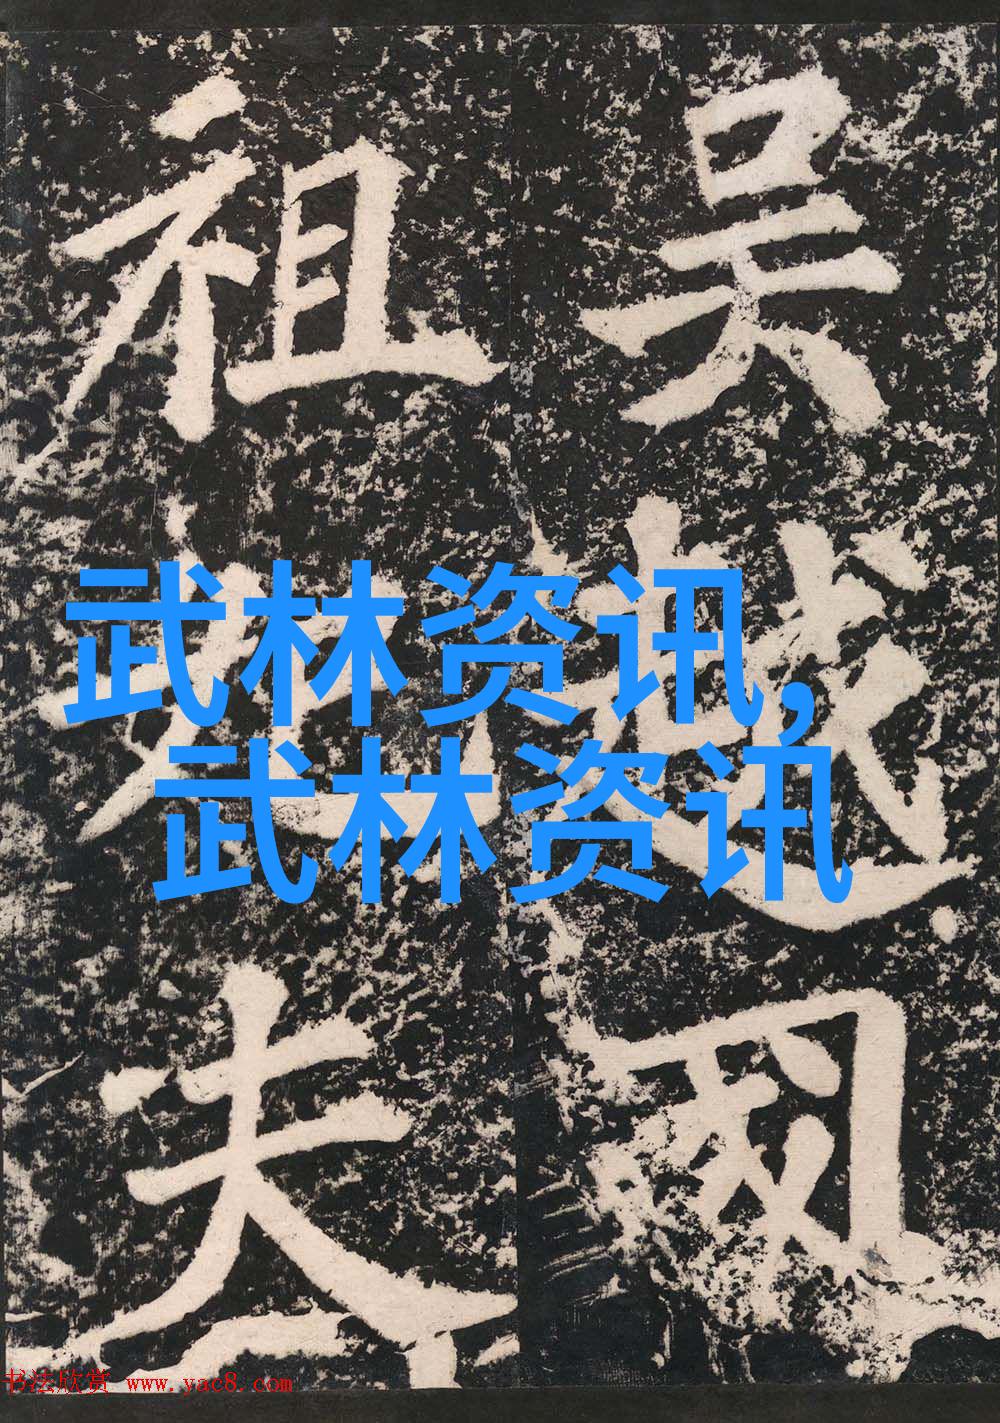 吴越
祖妃夫
武林资讯,
武林资讯
书法欣赏 www.yac8.com